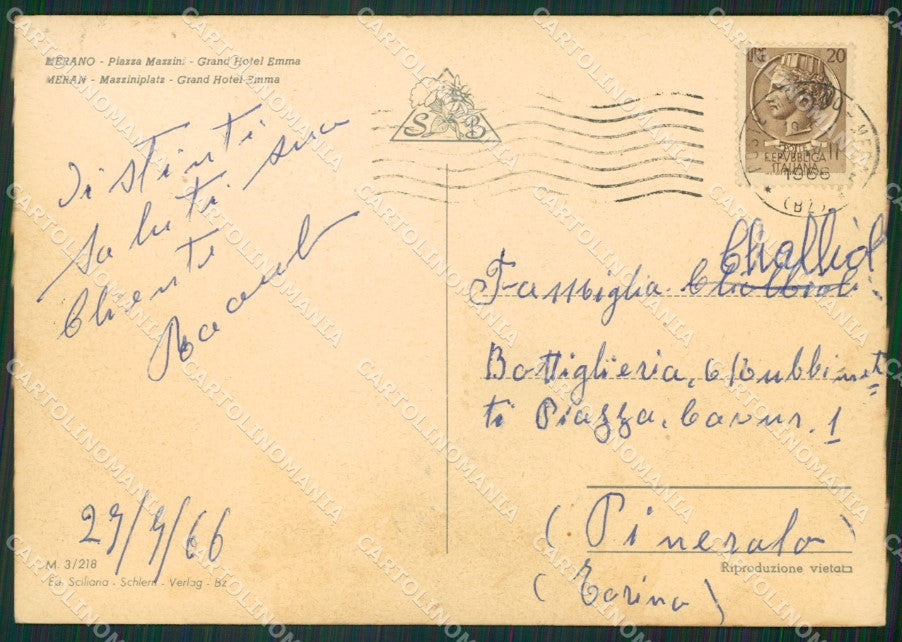 MERANO - Piazza Mazzini - Grand Hotel Emma
MERAN - Mazziniplatz - Grand Hotel Emma
Distinti
saluti sua
Cliente
29/9/66
M. 3/218
Ed. Siciliana - Schlern - Verlag - Bz
S B
20
REPVBBLICA
ITALIANA
1966
(BZ)
Famiglia Challiol
Bottiglieria,
ti Piazza, Cavour, 1
(Pinerolo)
(Torino)
Riproduzione vietata
CARTOLINOMANIA